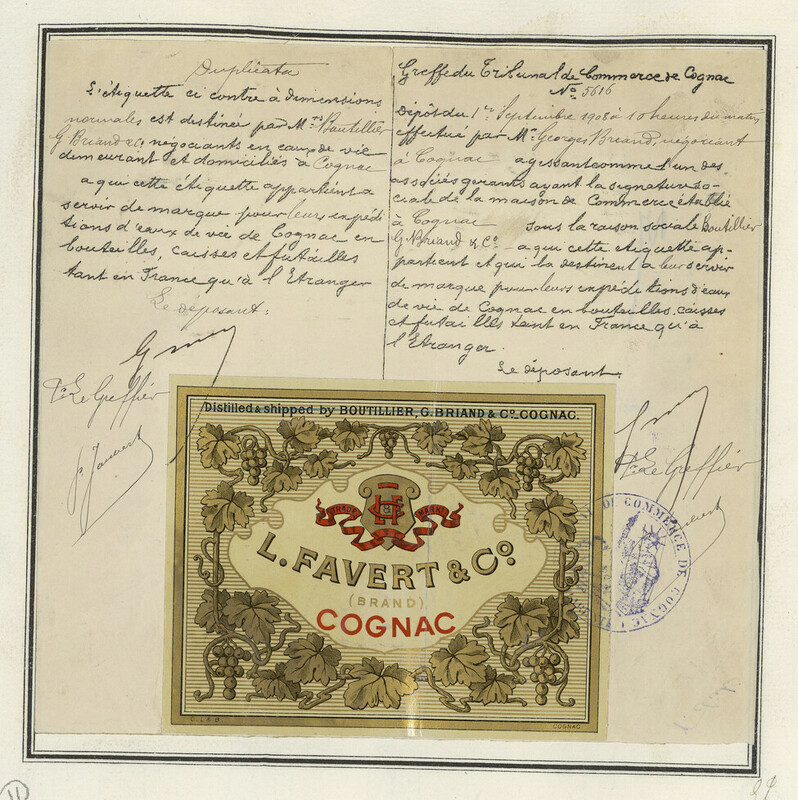 Duplicata
L'étiquette ci contre à dimensions
normales est destinée par Mrs Boutillier
G Briand & Co négociants en eaux de vie
demeurant et domiciliés à Cognac
a qui cette étiquette appartient a
servir de marque pour leurs expédi
tions d'eaux de vie de Cognac en
bouteilles, caisses et futailles
tant en France qu'à l'Etranger
Le déposant:
Pr Le Greffier
Greffe du Tribunal de Commerce de Cognac
No 5616
Dépôt du 1er Septembre 1908 à 10 heures du matin
effectué par Mr Georges Briand, négociant
à Cognac agissant comme l'un des
associés gerants ayant la signature so-
ciale de la maison de Commerce établie
à Cognac sous la raison sociale Boutillier
G Briand & Co a qui cette etiquette ap-
partient et qui la destinent a leur servir
de marque pour leurs expéditions d'eaux
de vie de Cognac en bouteilles, caisses
et futailles tant en France qu'à
l'Etranger.
Le déposant.
Pr Le Greffier
Distilled & shipped by BOUTILLIER, G. BRIAND & Co. COGNAC.
TRADE MARK
L. FAVERT & Co.
(BRAND)
COGNAC
COGNAC
DE COMMERCE DE COGNAC
11